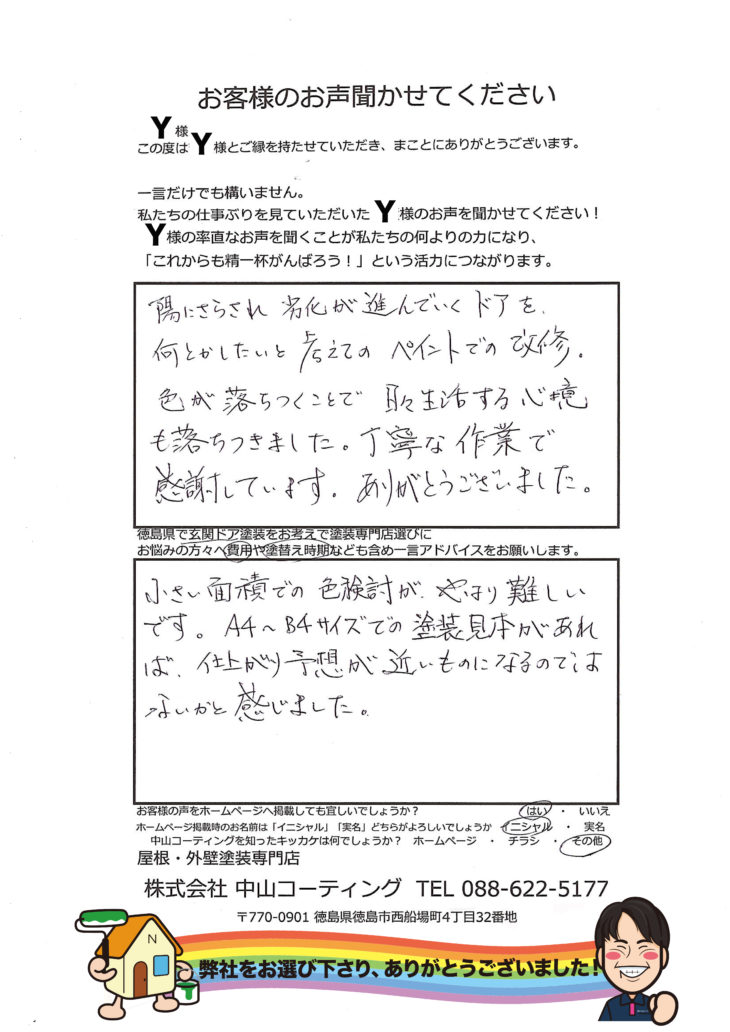 お客様のお声聞かせてください
Y様
この度はY様とご縁を持たせていただき、まことにありがとうございます。
一言だけでも構いません。
私たちの仕事ぶりを見ていただいたY様のお声を聞かせてください！
Y様の率直なお声を聞くことが私たちの何よりの力になり、
「これからも精一杯がんばろう！」という活力につながります。
陽にさらされ 劣化が進んでいくドアを、
何とかしたいと考えての ペイントでの改修。
色が落ちつくことで 日々生活する心境
も落ちつきました。丁寧な作業で
感謝しています。ありがとうございました。
徳島県で玄関ドア塗装をお考えで塗装専門店選びに
お悩みの方々へ費用や塗替え時期なども含め一言アドバイスをお願いします。
小さい面積での色検討が、やはり難しい
です。A4～B4サイズでの塗装見本があれ
ば、仕上がり予想が近いものになるのでは
ないかと感じました。
お客様の声をホームページへ掲載しても宜しいでしょうか？ はい ・ いいえ
ホームページ掲載時のお名前は「イニシャル」「実名」どちらがよろしいでしょうか イニシャル ・ 実名
中山コーティングを知ったキッカケは何でしょうか？ ホームページ ・ チラシ ・ その他
屋根・外壁塗装専門店
株式会社 中山コーティング TEL 088-622-5177
〒770-0901 徳島県徳島市西船場町4丁目32番地
N
弊社をお選び下さり、ありがとうございました！